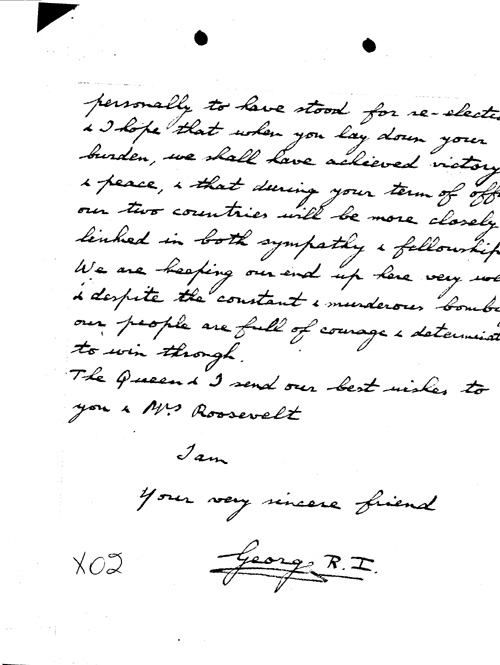 personally to have stood for re-electi
& I hope that when you lay down your
burden, we shall have achieved victory
& peace, & that during your term of off
our two countries will be more closely
linked in both sympathy & fellowship
We are keeping our end up here very we
& despite the constant & murderous bomb
our people are full of courage & determinat
to win through.
The Queen & I send our best wishes to
you & Mrs Roosevelt
I am
Your very sincere friend
George R.I.
X02